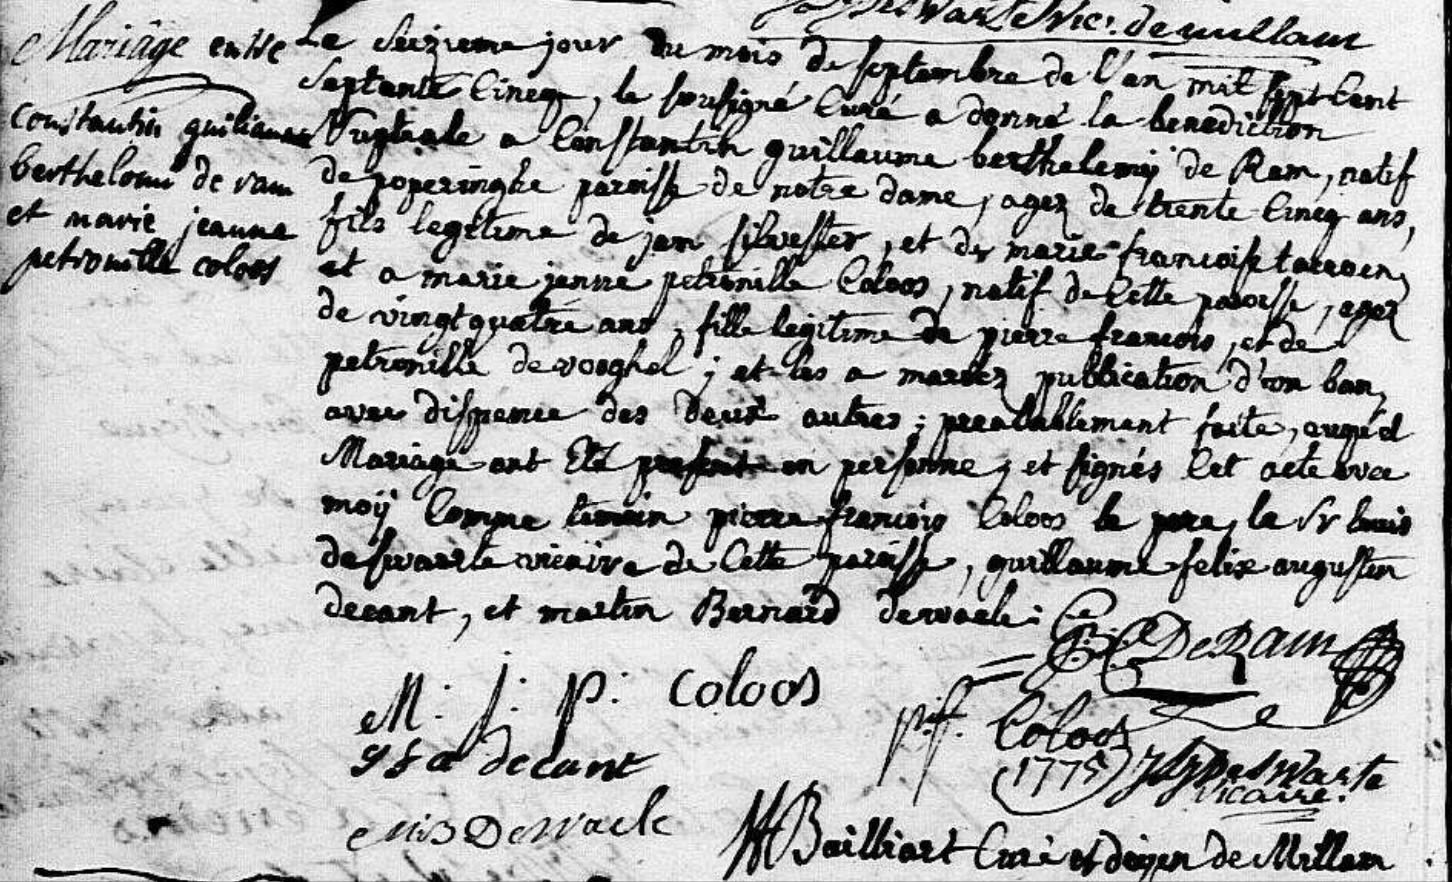 deswarte vic. de millam
Mariage entre
constantin guiliaume
berthelomi de ram
et marie jeanne
petronille coloos
Le seizieme jour du mois de septembre de l'an mil sept cent
septante cincq, le sousigné curé a donné la benediction
nuptiale a Constantin guillaume berthelemÿ de Ram, natif
de poperinghe paroisse de notre dame, agez de trente cincq ans,
fils legitime de jan silvester, et de marie francoise
et a marie janne petronille Coloos, natif de Cette paroisse, agez
de vingt quatre ans, fille legitime de pierre francois, et de
petronille de vooghel ; et les a mariez publication d'un ban,
avec dispence des deux autres ; prealablement faite, auquel
Mariage ont Eté present en personne, et signés Cet acte avec
moÿ Comme temoin pierre francois Coloos le pere, le sr louis
deswarte vicaire de Cette paroisse, guillaume felix augustin
decant, et martin Bernard dewaele :
C: G: B: De Ram
M: j: p: coloos
p: f: Coloos
1775
g f a decant
Deswarte
vicaire.
Dewaele
Bailliart Curé et doÿen de Millam